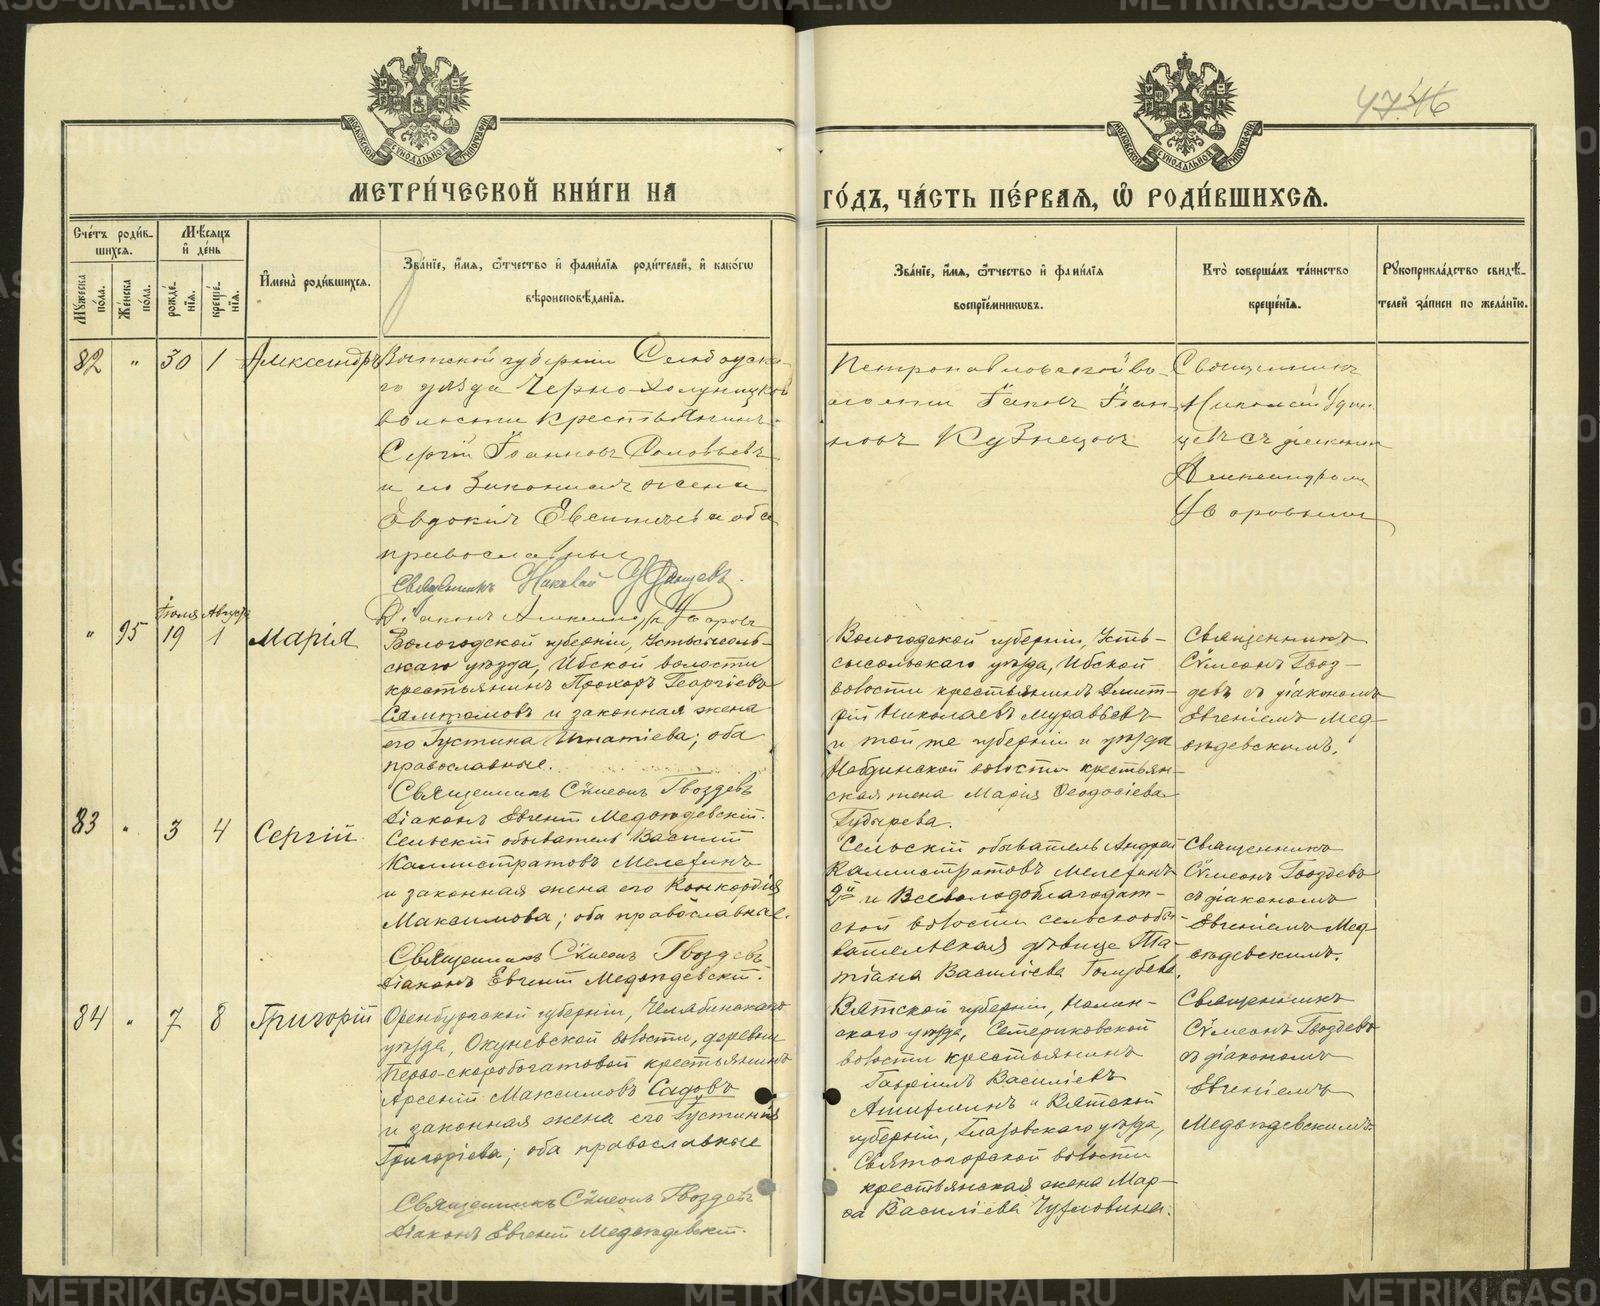 47. 46
МЕТРИ́ЧЕСКОЙ КНИ́ГИ НА
ГО́ДЪ, ЧА́СТЬ ПЕ́РВАЯ, Ѽ РОДИ́ВШИХСЯ.
Сче́тъ роди́в-
шихся.
Мѣ́сяцъ
и҆ де́нь
Мꙋ́жеска по́ла.
Же́нска по́ла.
рожде́-
нїя.
креще́-
нїя.
И҆мена̀ роди́вшихся.
Зва́нїе, и҆́мя, ѻ҆́тчество и҆ фами́лїя роди́телей, и҆ како́гѡ
вѣроисповѣ́данїя.
Зва́нїе, и҆́мя, ѻ҆́тчество и҆ фами́лїя
воспрїе́мникѡвъ.
Кто̀ соверша́лъ та́инство
креще́нїя.
Рꙋкоприкла́дство свидѣ́-
телей за́писи по жела́нїю.
82 " 30 1 Александръ
Вятской губерніи Слободска-
го уѣзда Черно-Холуницкой
волости крестьянинъ
Сергій Іоанновъ Соловьевъ
и его законная жена
Евдокія оба
православные
Священникъ Николай
Діаконъ Александръ Уваровъ
Петропавловской во-
лости Іаковъ Іоан
новъ Кузнецовъ
Священникъ
Николай
съ діакономъ
Александромъ
Уваровымъ
Іюля Августа
" 95 19 1 Марія
Вологодской губерніи, Устьсысоль-
скаго уѣзда, Ибской волости
крестьянинъ Прохоръ Георгіевъ
и законная жена
его Іустина Игнатіева; оба
православные.
Священникъ Сѵмеонъ Гвоздевъ
Діаконъ Евгеній Медвѣдевскій.
Вологодской губерніи, Усть-
сысольскаго уѣзда, Ибской
волости крестьянинъ Дмит-
рій Николаевъ Муравьевъ
и той же губерніи и уѣзда
волости крестьян-
ская жена Марія Ѳеодосіева
Гудырева.
Священникъ
Сѵмеонъ Гвоз-
девъ съ діакономъ
Евгеніемъ Мед
вѣдевскимъ.
83 " 3 4 Сергій
Сельскій обыватель Василій
Каллистратовъ Мелехинъ
и законная жена его Конкордія
Максимова; оба православные.
Священникъ Сѵмеонъ Гвоздевъ
Діаконъ Евгеній Медвѣдевскій.
Сельскій обыватель Андрей
Каллистратовъ Мелехинъ
2й и Всеволодоблагодат-
ской волости сельскообы-
вательская дѣвица Та-
тіана Василіева Голубева.
Священникъ
Сѵмеонъ Гвоздевъ
съ діакономъ
Евгеніемъ Мед
вѣдевскимъ.
84 " 7 8 Григорій
Оренбургской губерніи, Челябинскаго
уѣзда, Окуневской волости, деревни
Перво-скоробогатовой крестьянинъ
Арсеній Максимовъ Садовъ
и законная жена его Іустинія
Григоріева; оба православные
Священникъ Сѵмеонъ Гвоздевъ
Діаконъ Евгеній Медвѣдевскій.
Вятской губерніи, Нолин-
скаго уѣзда, Сетериковской
волости крестьянинъ
Гавріилъ Василіевъ
и Вятской
губерніи, Глазовскаго уѣзда,
Святогорской волости
крестьянская жена Мар-
ѳа Василіева
Священникъ
Сѵмеонъ Гвоздевъ
съ діакономъ
Евгеніемъ
Медвѣдевскимъ.
METRIKI.GASO-URAL.RU